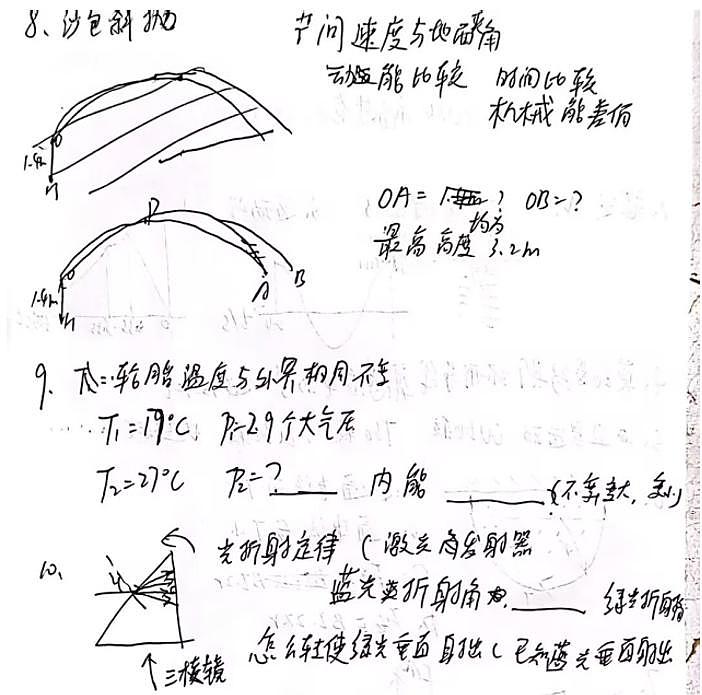 8、沙包斜抛
节问 速度与地面夹角
动能比较 时间比较
机械能差值
1.4m
M
P
OA= ? OB=?
均为
最高高度 3.2m
1.4m
A B
M
9、轮胎温度与外界相同不变
T₁=17°C P₁=2.9个大气压
T₂=27°C P₂=?____ 内能 ____ (不变,变大,变小)
10、
光折射定律 (激光发射器
蓝光折射角____ 绿光折射角
怎么转使绿光垂直射出(已知蓝光垂直射出
↑三棱镜